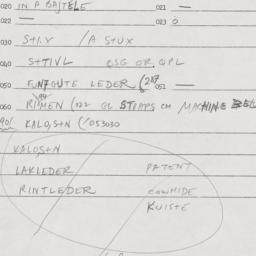 020 IN A BAJTELE 021 —
022 — 023 0
030 STI.V /A STUX
040 STTIVL OSG OR QPL
050 GUTE LEDER (217 051 —
060 RIEMEN (022 GL STRAPS ON MACHINE
KALOSTN (/053030
KALOSTN
LAKLEDER PATENT
RINTLEDER COWHIDE
KUISTE